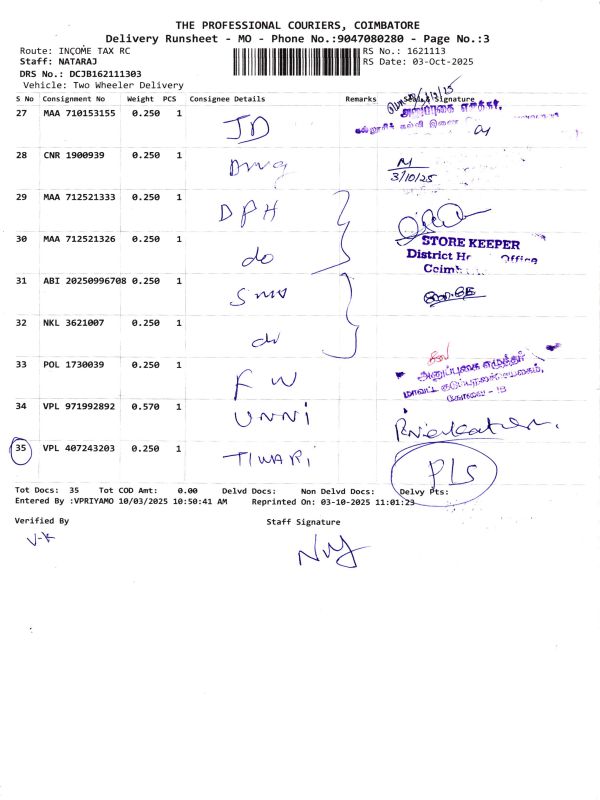 THE PROFESSIONAL COURIERS, COIMBATORE
Delivery Runsheet - MO - Phone No.:9047080280 - Page No.:3
Route: INCOME TAX RC RS No.: 1621113
Staff: NATARAJ RS Date: 03-Oct-2025
DRS No.: DCJB162111303
Vehicle: Two Wheeler Delivery
S No Consignment No Weight PCS Consignee Details Remarks Signature
27 MAA 710153155 0.250 1 JD
28 CNR 1900939 0.250 1
3/10/25
29 MAA 712521333 0.250 1 DPH
30 MAA 712521326 0.250 1 do STORE KEEPER
District Office
31 ABI 20250996708 0.250 1
32 NKL 3621007 0.250 1 do
33 POL 1730039 0.250 1 FW அனுப்புகை எழுத்தர்
34 VPL 971992892 0.570 1 UNNI
35 VPL 407243203 0.250 1 TIWARI PLS
Tot Docs: 35 Tot COD Amt: 0.00 Delvd Docs: Non Delvd Docs: Delvy Pts:
Entered By :VPRIYAMO 10/03/2025 10:50:41 AM Reprinted On: 03-10-2025 11:01:23
Verified By Staff Signature
V-K